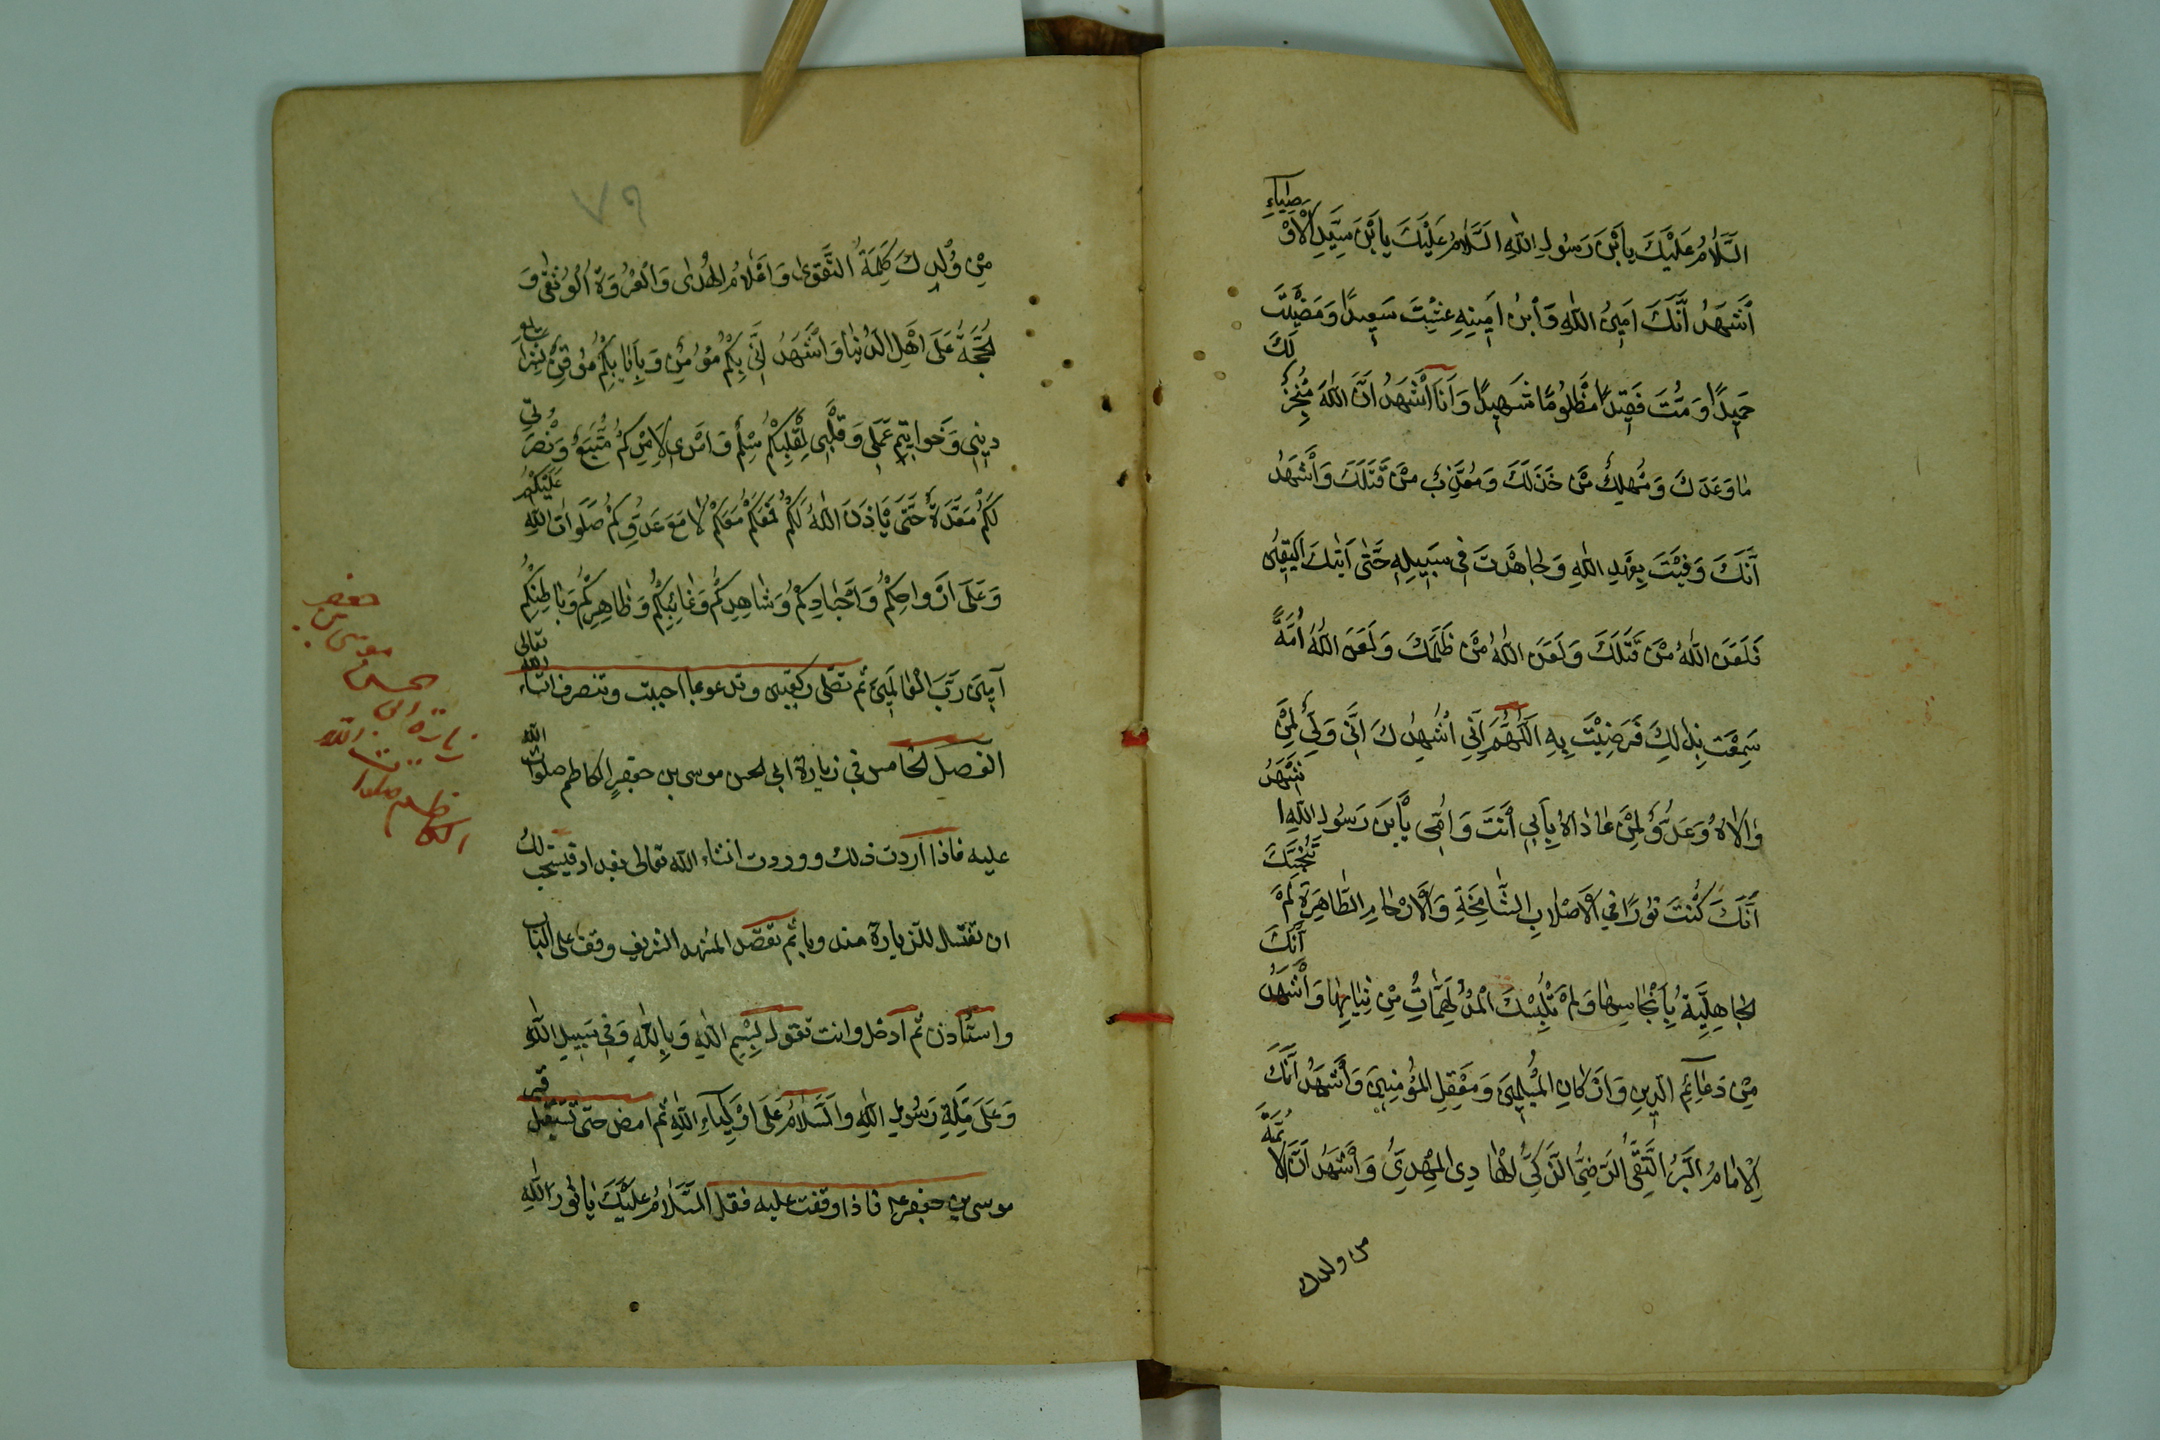 اَلسَّلٰامُ عَلَيْكَ يا بْنَ رَسُولِ اللّٰهِ اَلسَّلٰامُ عَلَيْكَ يا بْنَ سَيِّدِ الْاَوْصِيٰاءِ
اَشْهَدُ اَنَّكَ اَمِينُ اللّٰهِ وَابْنُ اَمِينِهِ عِشْتَ سَعِيدًا وَمَضَيْتَ
حَمِيدًا وَمُتَّ فَقِيدًا مَظْلُومًا شَهِيدًا وَاَنَا اَشْهَدُ اَنَّ اللّٰهَ مُنْجِزٌ لَكَ
مٰا وَعَدَكَ وَمُهْلِكٌ مَنْ خَذَلَكَ وَمُعَذِّبٌ مَنْ قَتَلَكَ وَاَشْهَدُ
اَنَّكَ وَفَيْتَ بِعَهْدِ اللّٰهِ وَجٰاهَدْتَ فِي سَبِيلِهِ حَتّٰى اَتٰيكَ الْيَقِينُ
فَلَعَنَ اللّٰهُ مَنْ قَتَلَكَ وَلَعَنَ اللّٰهُ مَنْ ظَلَمَكَ وَلَعَنَ اللّٰهُ اُمَّةً
سَمِعَتْ بِذٰلِكَ فَرَضِيَتْ بِهِ اَللّٰهُمَّ اِنِّي اُشْهِدُكَ اَنِّي وَلِيٌّ لِمَنْ
وٰالاٰهُ وَعَدُوٌّ لِمَنْ عٰادٰاهُ بِاَبِي اَنْتَ وَاُمِّي يَا بْنَ رَسُولِ اللّٰهِ اَشْهَدُ
اَنَّكَ كُنْتَ نُورًا فِي الْاَصْلٰابِ الشّٰامِخَةِ وَالْاَرْحٰامِ الطّٰاهِرَةِ لَمْ تُنَجِّسْكَ
الْجٰاهِلِيَّةُ بِاَنْجٰاسِهٰا وَلَمْ تُلْبِسْكَ الْمُدْلَهِمّٰاتُ مِنْ ثِيٰابِهٰا وَاَشْهَدُ اَنَّكَ
مِنْ دَعٰائِمِ الدِّينِ وَاَرْكٰانِ الْمُسْلِمِينَ وَمَعْقِلِ الْمُؤْمِنِينَ وَاَشْهَدُ اَنَّكَ
الْاِمٰامُ الْبَرُّ التَّقِيُّ الرَّضِيُّ الزَّكِيُّ الْهٰادِي الْمَهْدِيُّ وَاَشْهَدُ اَنَّ الْاَئِمَّةَ
من ولدك
٢٧
مِنْ وُلْدِكَ كَلِمَةُ التَّقْوىٰ وَاَعْلٰامُ الْهُدىٰ وَالْعُرْوَةُ الْوُثْقٰى وَ
الْحُجَّةُ عَلَى اَهْلِ الدُّنْيٰا وَاَشْهَدُ اَنِّي بِكُمْ مُؤْمِنٌ وَبِاِيٰابِكُمْ مُوقِنٌ بِشَرٰايعِ
دِينِي وَخَوٰاتِيمِ عَمَلِي وَقَلْبِي لِقَلْبِكُمْ سِلْمٌ وَاَمْرِي لِاَمْرِكُمْ مُتَّبِعٌ وَنُصْرَتِي
لَكُمْ مُعَدَّةٌ حَتّٰى يَاْذَنَ اللّٰهُ لَكُمْ فَمَعَكُمْ مَعَكُمْ لٰا مَعَ عَدُوِّكُمْ صَلَوٰاتُ اللّٰهِ عَلَيْكُمْ
وَعَلَى اَرْوٰاحِكُمْ وَاَجْسٰادِكُمْ وَشٰاهِدِكُمْ وَغٰائِبِكُمْ وَظٰاهِرِكُمْ وَبٰاطِنِكُمْ
آمِينَ رَبَّ الْعٰالَمِينَ ثم تصلى ركعتين وتدعو بما احببت وتنصرف انشاء الله تعالى
الفصل الخامس في زيارة ابي الحسن موسى بن جعفر الكاظم صلوات الله
عليه فاذا اردت ذلك ووردت انشاء الله تعالى بغداد فيستحب لك
ان تغتسل للزيارة مندوبا ثم تقصد المشهد الشريف وقف على الباب
واستأذن ثم ادخل وانت تقول بِسْمِ اللّٰهِ وَبِاللّٰهِ وَفِي سَبِيلِ اللّٰهِ
وَعَلَى مِلَّةِ رَسُولِ اللّٰهِ وَالسَّلٰامُ عَلَى اَوْلِيٰاءِ اللّٰهِ ثم امض حتى تستقبل قبر
موسى بن جعفر ع فاذا وقفت عليه فقل اَلسَّلٰامُ عَلَيْكَ يٰا نُورَ اللّٰهِ
جعفر
موسى بن
الحسن
زيارة ابى
صلوات الله
الكاظم